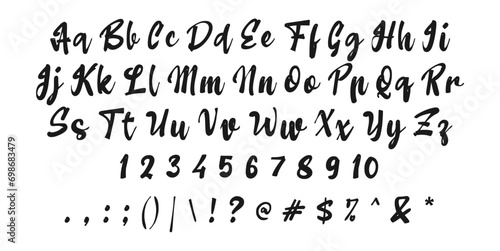 Aa Bb Cc Dd Ee Ff Gg Hh Ii
Jj Kk Ll Mm Nn Oo Pp Qq Rr
Ss Tt Uu Vv Ww Xx Yy Zz
1 2 3 4 5 6 7 8 9 10
. , : ; ( ) | \ ! ? @ # $ % ^ & *
Adobe Stock | #698683479